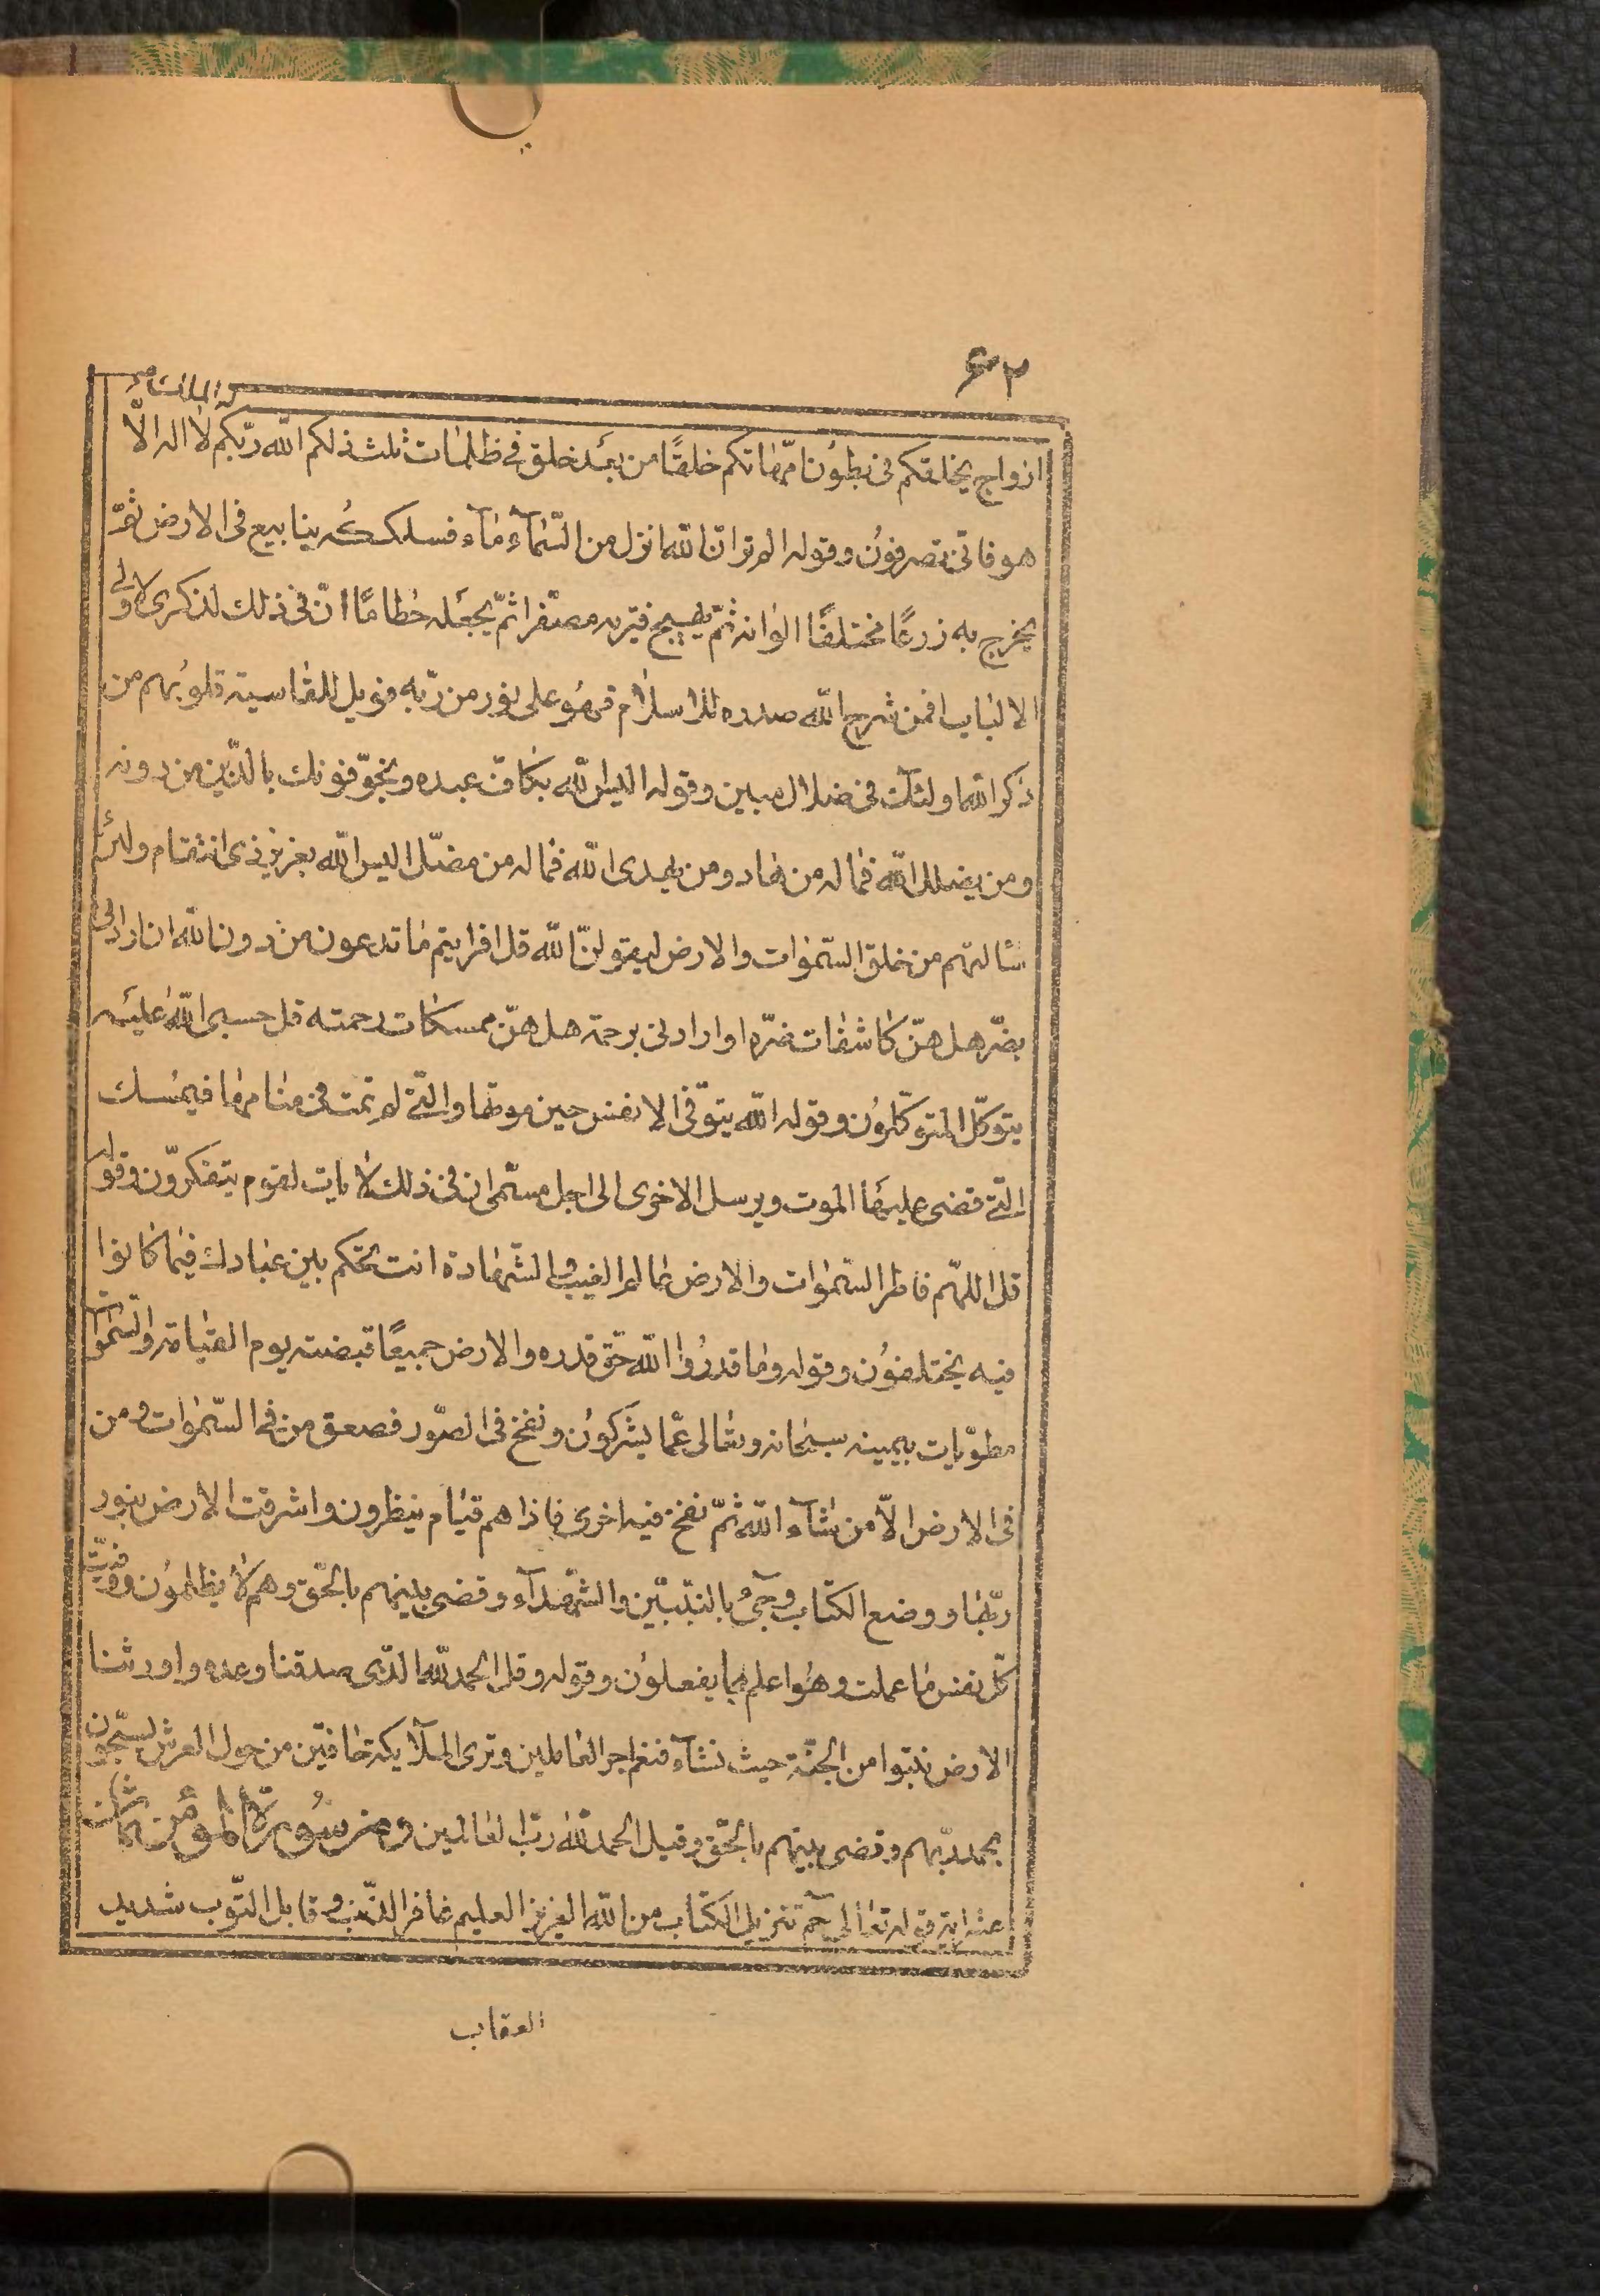 ٦٢
له الملك
ازواج يخلقكم فى بطون امّهاتكم خلقًا من بعد خلق فى ظلمات ثلث ذلكم الله ربّكم لا اله الّا
هو فانّى تصرفون وقوله الم تر انّ الله انزل من السّمآء مآء فسلكه ينابيع فى الارض ثمّ
يخرج به زرعًا مختلفًا الوانه ثمّ يهيج فتريه مصفرا ثمّ يجعله حطامًا انّ فى ذلك لذكرى لاولى
الالباب افمن شرح الله صدره للاسلام فهو على نور من ربّه فويل للقاسية قلوبهم من
ذكر الله اولئك فى ضلال مبين وقوله اليس الله بكاف عبده ويخوّفونك بالّذين من دونه
ومن يضلل الله فما له من هاد ومن يهدى الله فما له من مضلّ اليس الله بعزيز ذى انتقام ولئن
سالتهم من خلق السّموات والارض ليقولنّ الله قل افرايتم ما تدعون من دون الله ان ارادنى
بضرّ هل هنّ كاشفات ضرّه او ارادنى برحمة هل هنّ ممسكات رحمته قل حسبى الله عليه
يتوكّل المتوكّلون وقوله الله يتوفّى الانفس حين موتها والّتى لم تمت فى منامها فيمسك
الّتى قضى عليها الموت ويرسل الاخرى الى اجل مسمّى ان فى ذلك لايات لقوم يتفكّرون وقوله
قل اللهمّ فاطر السّموات والارض عالم الغيب والشّهادة انت تحكم بين عبادك فيما كانوا
فيه يختلفون وقوله وما قدروا الله حقّ قدره والارض جميعًا قبضته يوم القيامة والسّموات
مطويّات بيمينه سبحانه وتعالى عمّا يشركون ونفخ فى الصّور فصعق من فى السّموات ومن
فى الارض الّا من شآء الله ثمّ نفخ فيه اخرى فاذا هم قيام ينظرون واشرقت الارض بنور
ربّها ووضع الكتاب وجىء بالنبيّين والشّهدآء وقضى بينهم بالحقّ وهم لا يظلمون ووفّيت
كلّ نفس ما عملت وهو اعلم بما يفعلون وقوله وقل الحمد لله الّذى صدقنا وعده واورثنا
الارض نتبوا من الجنّة حيث نشآء فنعم اجر العاملين وترى الملآئكة حافّين من حول العرش يسبّحون
بحمد ربّهم وقضى بينهم بالحقّ وقيل الحمد لله ربّ العالمين ومن سورة المؤمن ثمان
عشر اية قوله تعالى حم تنزيل الكتاب من الله العزيز العليم غافر الذّنب وقابل التّوب شديد
العقاب